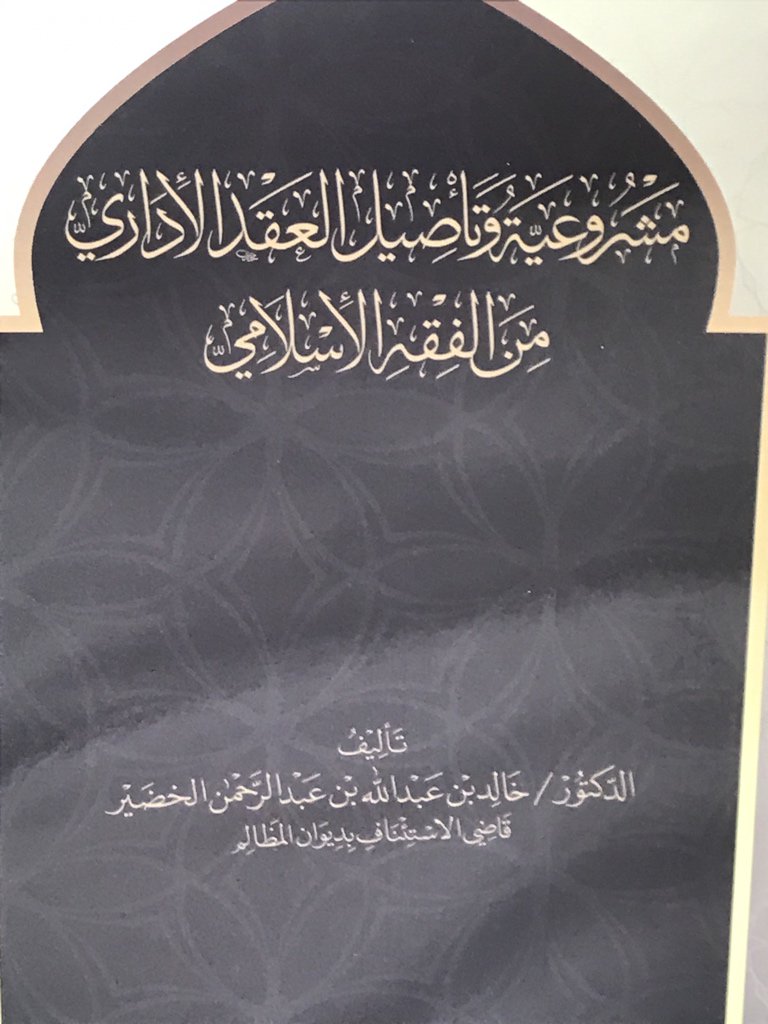 مَشْرُوعِيَّةُ وَتَأْصِيل العَقْد الأِدَارِيّ
مِنَ الفِقْهِ الإِسْلَامِيّ
تَأليْفُ
الدّكتُورْ / خَالِد بْن عَبْدالله بْن عَبْدالرَّحْمٰن الخضَيْر
قَاضِي الاسْتِئْنَافِ بِدِيوَان المَظَالِم